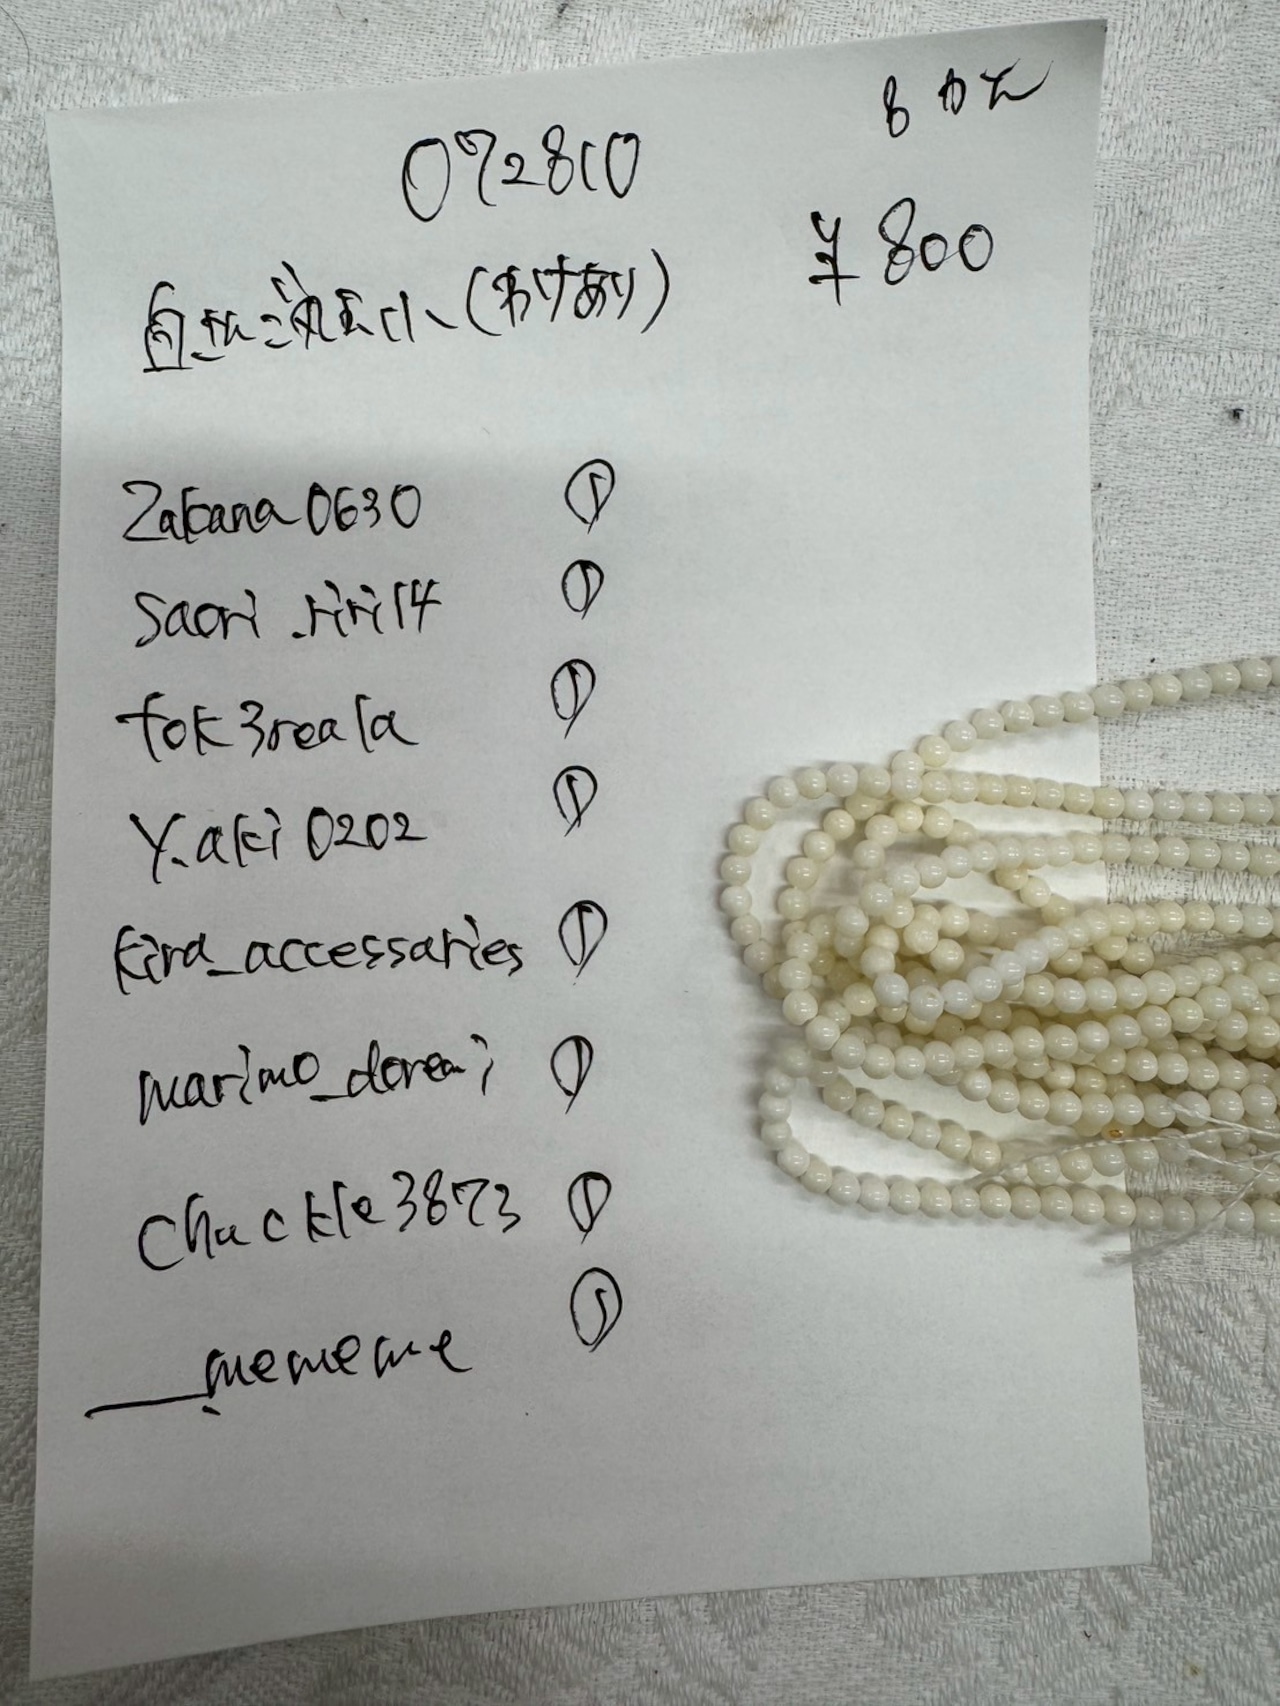 072810
¥800
白さんご 丸玉 小 (わけあり)
Zakana0630 ①
saori_riri14 ①
tok3reala ①
y.aki0202 ①
kira_accessaries ①
marimo_doremi ①
chuckle3873 ①
___mememe ①